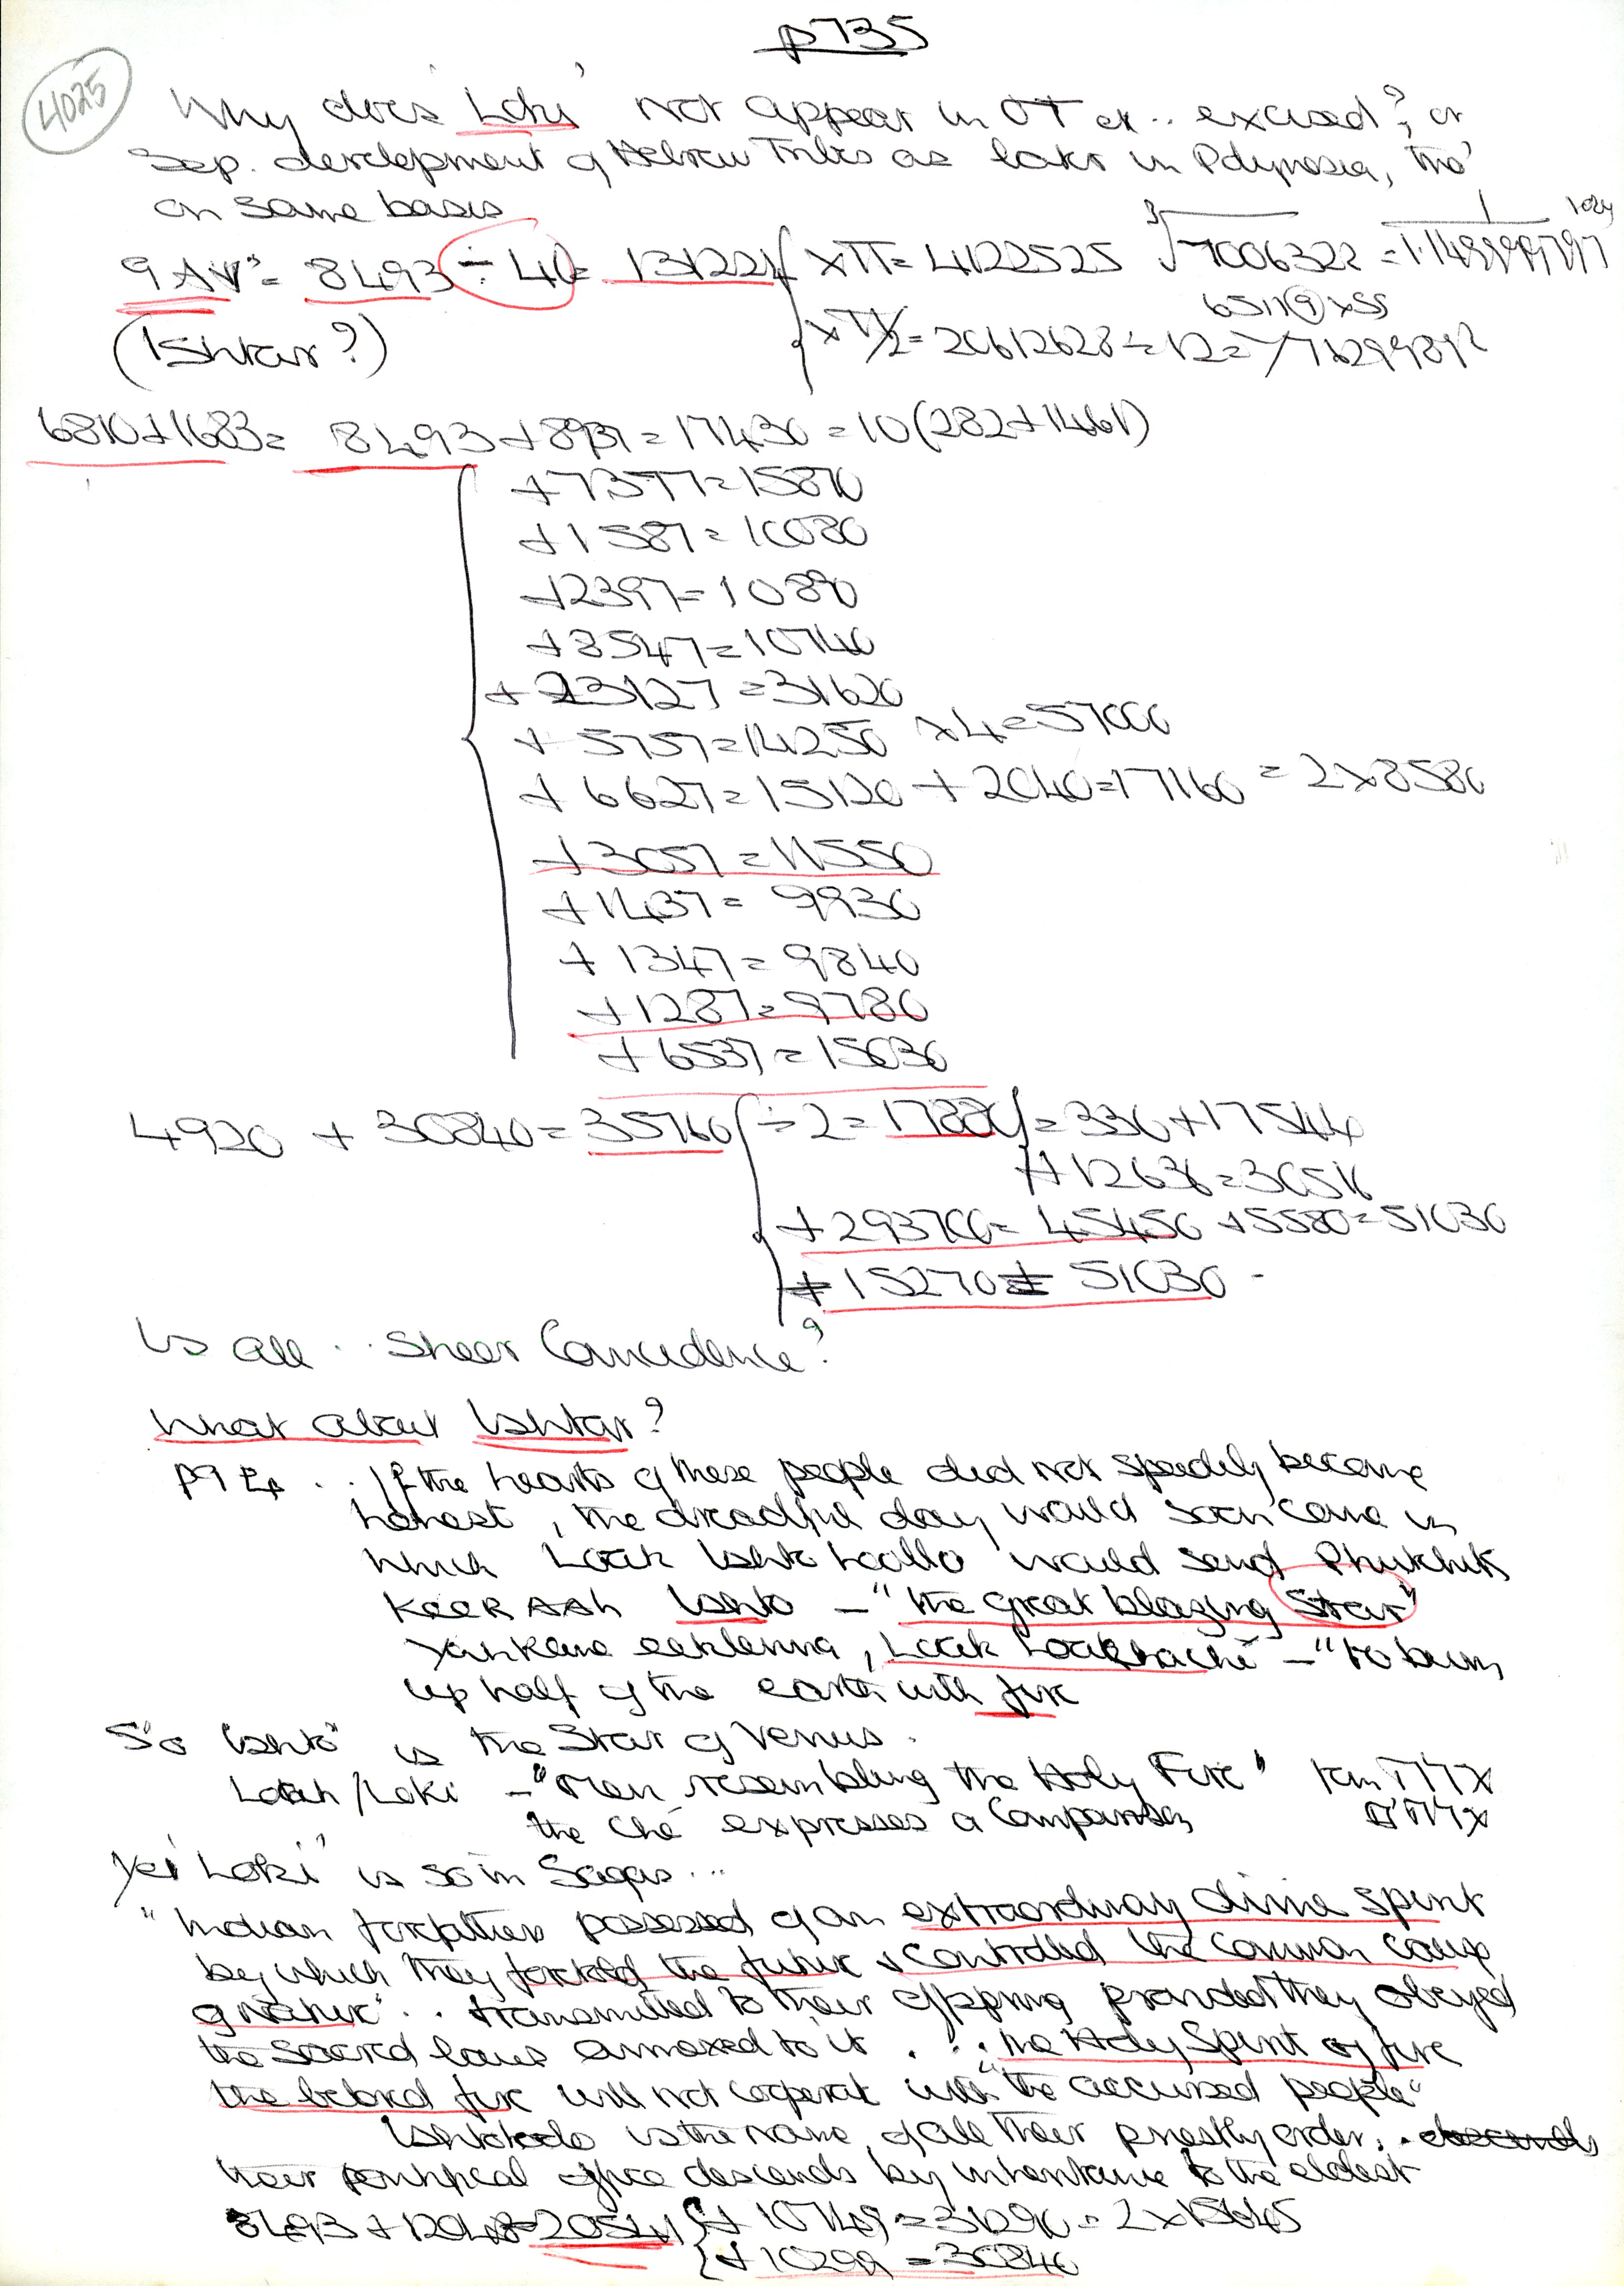 p735
4025
Why does 'Loki' not appear in OT or .. excised?, or
Sep. development of Hebrew Tribes as later in Polynesia, tho'
on same basis
9 AV = 8493 ÷ 40 = 131221 xπ = 4122525 ³√7006322 =
(Ishtar?)
xπ/2 = 20612628 ÷ 12 =
6810+1683= 8493+8937=17430=10(282+1461)
+7377=15870
+1587=10080
+2397=10890
+8547=10740
+23127=31620
+5757=14250 x4=57000
+6627=15120+2040=17160 = 2x8580
+3057=11550
+1437=9930
+1347=9840
+1287=9780
+6537=15030
4920 + 30840=35760 ÷2=17880 =336+17544
+12636=30516
+293700=45450+5580=51030
+15270= 51030 -
Is all .. Sheer Coincidence?
What about Ishtar?
.. If the hearts of these people did not speedily become
honest, the dreadful day would soon come in
which Loak Ishto hoollo would send Phutchik
Keeraah Ishto – "the great blazing Star"
Yahkane eeklenna, Loak Loakache – "to burn
up half of the earth with fire
So "Ishto" is the Star of Venus.
Loak/Loki – "Men resembling the Holy Fire"
the ché expresses a Comparison
Yet 'Loki' is so in Sagas...
"Indian forefathers possessed of an extraordinary divine spirit
by which they foretold the future & controlled the common course
of nature" .. transmitted to their offspring provided they obeyed
the sacred laws annexed to it ... the Holy Spirit of fire
the beloved fire will not cooperate with "the accursed people"
is the name of all their priestly order..
their pontifical office descends by inheritance to the eldest
8493+12048=20541 +10749=31290=2x15645
+10299=30840